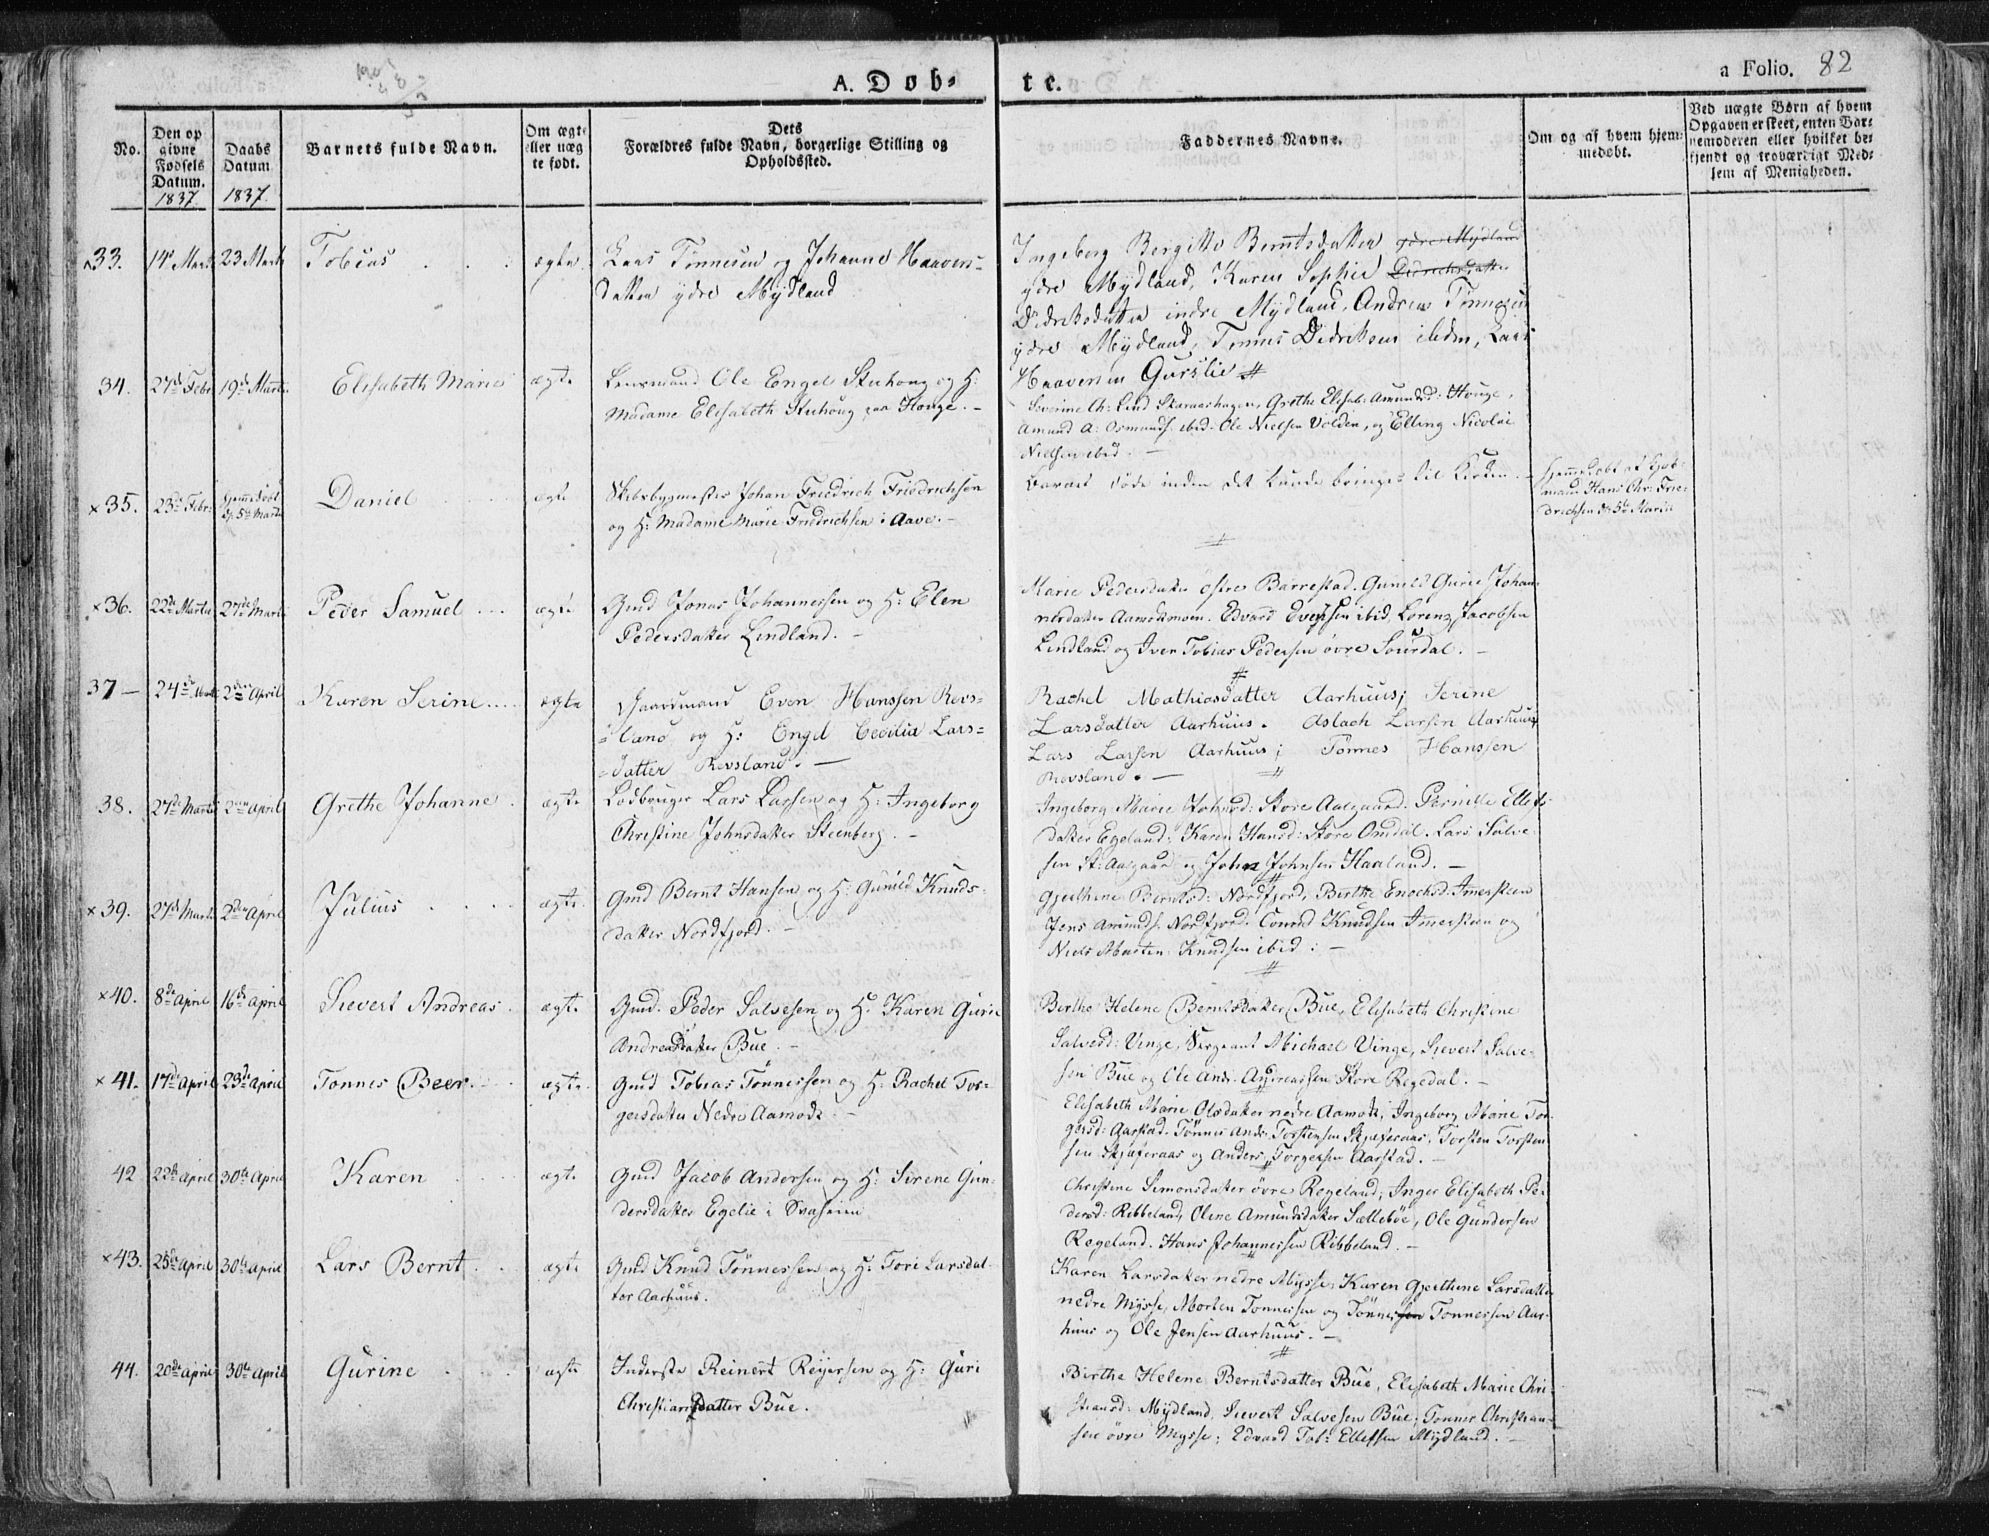 A. Døb-
te.
a Folio. 82
No.
Den op
givne
Fødsels
Datum.
1837
Daabs
Datum
1837.
Barnets fulde Navn.
Om ægte
eller uæg
te født.
Dets
Forældres fulde Navn, borgerlige Stilling og
Opholdssted.
Faddernes Navne.
Om og af hvem hjem-
medøbt.
Ved uægte Børn af hvem
Opgaven er skeet, enten Bar-
nemoderen eller hvilket be-
kjendt og troværdigt Med-
lem af Menigheden.
33. 14de Marts 23 Marts Tobias ægte
Lars Tønnesen og Johanne Haavers-
datter ydre Mydland
Ingeborg Bergitte Berntsdatter ydre Mydland
ydre Mydland, Karen Sophie Didrichsdatter
Didriksdatter indre Mydland, Andreas Tønnesen
ydre Mydland, Tønnes Didriksen ibdm, Lars
Haaversen Gurslie #
34. 27de Febr 19de Marts Elisabeth Marie ægte
Lensmand Ole Engel Stuhoug og H:
Madame Elisabeth Stuhoug paa Houge. -
Severine Ch: Lind Skaraashagen, Grethe Elisab: Amundsd: Houge,
Amund A: Osmunds. ibid. Ole Nielsen Volden, og Elling Nicolai
Nielsen ibid. -
×35. 23de Febr: Hjemedøbt d. 5te Martii Daniel ægte
Skibsbygmester Johan Friedrich Friedrichsen
og H: Madame Marie Fridrichsen i Aave. -
Barnet døde inden det kunde bringes til Kirken. -
Hjemedøbt af Kjøb-
mand Hans Chr: Frie-
drichsen d. 5te Martii
#
×36. 22de Martii 27de Marts Peder Samuel ægte
Gmd Jonas Johannessen og H: Elen
Pedersdatter Lindland. -
Marie Pedersdatter østre Barrestad. Gunild Gurie Johan-
nesdatter Aamodtmoen. Edvard Evensen ibid, Lorenz Jacobsen
Lindland og Iver Tobias Pedersen øvre Sourdal. -
#
37 - 24de Marts 2den April Karen Serine ægte
Gaardmand Even Hanssen Revs-
land og H: Engel Cecilia Lars-
datter Revsland. -
Rachel Mathiasdatter Aarhuus; Serine
Larsdatter Aarhuus. Aslach Larsen Aarhuus
Lars Larsen Aarhuus; Tønnes Hanssen
Revsland. -
#
38. 27de Martii 2den April Grethe Johanne ægte
Lodbruger Lars Larsen og H: Ingeborg
Christine Johnsdatter Steenberg. -
Ingeborg Marie Johnsd: Store Aalgaard. Pernille Ellefs-
datter Egeland; Karen Hansd: Store Omdal. Lars Salve-
sen St: Aalgaard og John Johnsen Haaland. -
#
×39. 27de Marts 2den April Julius ægte
Gmd Bernt Hansen og H: Gunild Knuds-
datter Nordfjord. -
Gjerthine Berntsd: Nordfjord, Birthe Enochsd. Immersteen
Jens Amunds. Nordfjord. Conrad Knudsen Immersteen og
Niels Morten Knudsen ibid: -
#
×40. 8de April 16de April Sievert Andreas ægte
Gmd. Peder Salvesen og H: Karen Gurie
Andreasdatter Bue. -
Berthe Helene Berntsdatter Bue, Elisabeth Christine
Salvesd: Vinge, Sergeant Michael Vinge, Sievert Salve-
sen Bue og Ole Andr: Andreassen Store Regedal. -
×41. 17de April 23de April Tonnes Beer ægte
Gmd Tobias Tønnessen og H: Rachel Tor-
gersdatter Nedre Aamodt. -
Elisabeth Marie Olsdatter nedre Aamodt, Ingeborg Marie Tor-
gersd: Aarstad. Tønnes Andr. Torstensen Skjæferaas, Torsten Torsten-
sen Skjæferaas og Anders Torgersen Aarstad. -
42 22de April 30te April Karen ægte
Gmd Jacob Andersen og H: Sirene Gun-
dersdatter Egelie i Svaheim
Christine Simonsdatter øvre Regeland; Inger Elisabeth Pe-
dersd: Ribbeland, Oline Amundsdatter Sællebøe, Ole Gundersen
Regeland. Hans Johannessen Ribbeland. -
×43. 25de April 30te April Lars Bernt ægte
Gmd Knud Tønnessen og H: Tori Larsdat-
ter Aarhuus.
Karen Larsdatter nedre Mysse, Karen Gjerthine Larsdatter
nedre Mysse, Morten Tonnessen og Tønnessen Tonnessen Aar-
huus og Ole Jensen Aarhuus. -
#
44. 20de April 30te April Gurine ægte
Inderste Reinert Reyersen og H: Guri
Christiansdatter Bue.
Birthe Helene Berntsdatter Bue, Elisabeth Marie Chri-
stiansd: Mydland, Sievert Salvesen Bue; Tonnes Christian-
sen øvre Mysse; Edvard Tob: Ellefsen Mydland. -